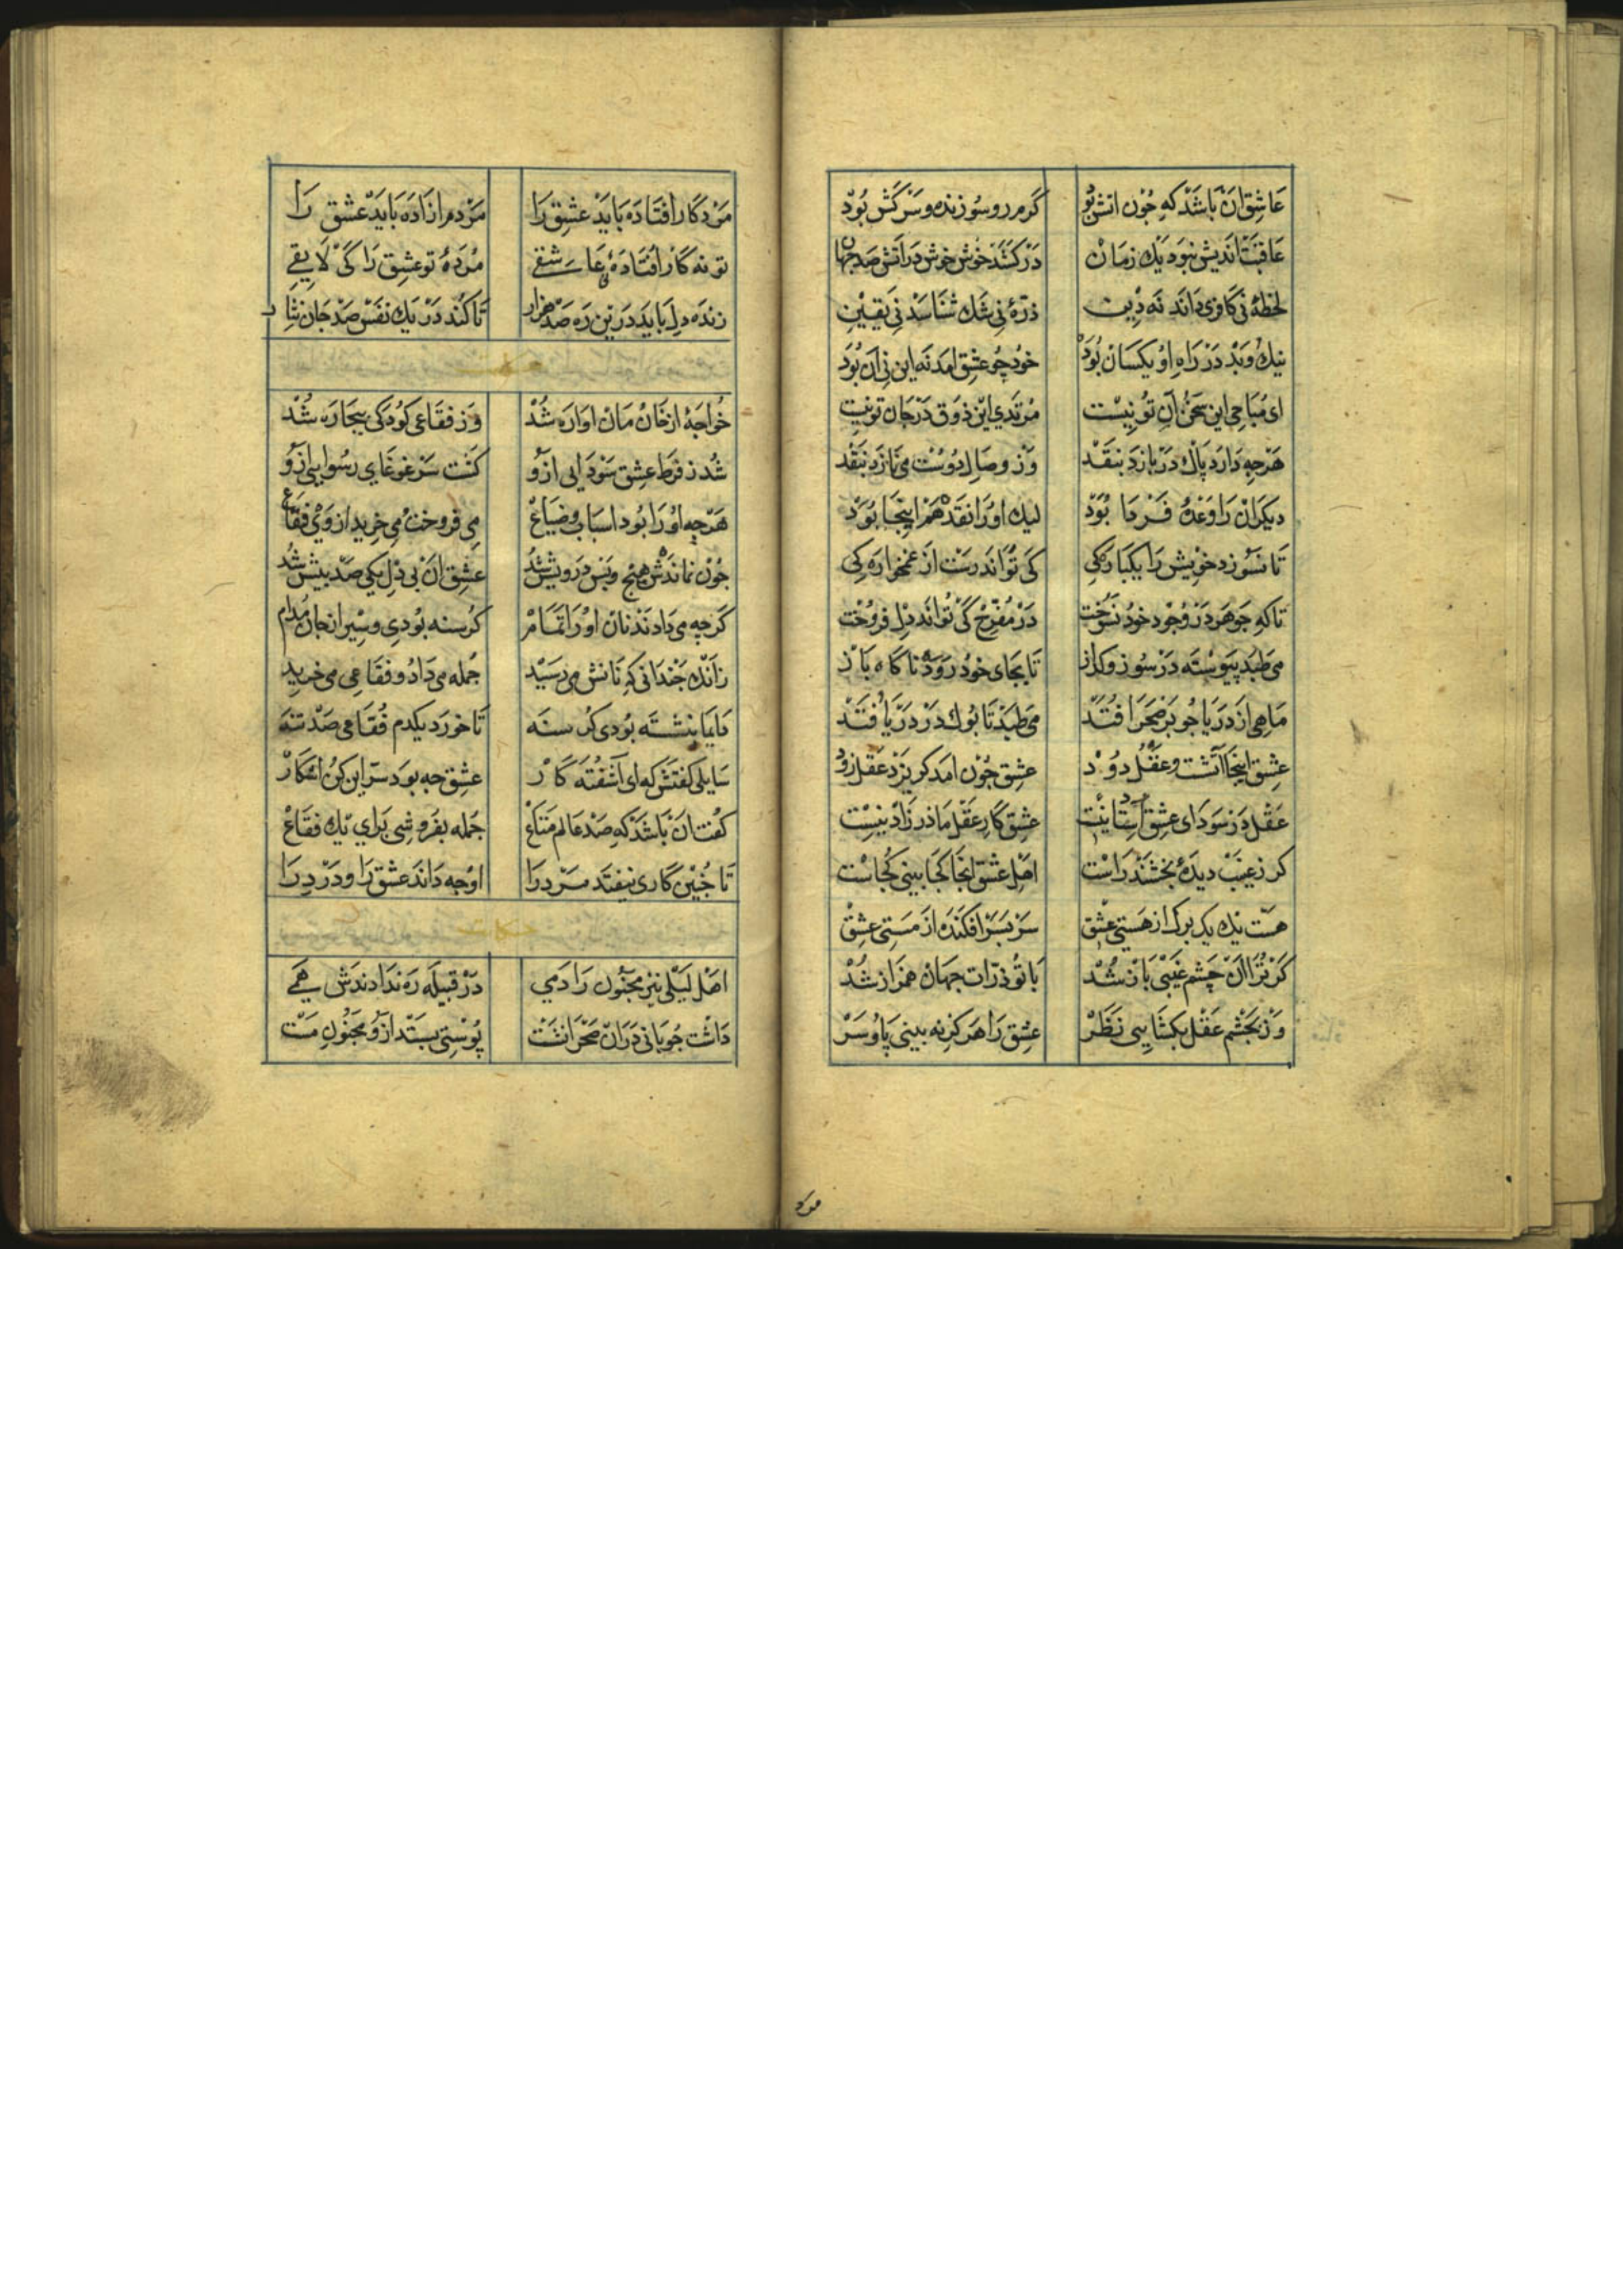 عاشق ان باشد که جون اتش بود گرم رو سوزنده و سرکش بود
عاقبت اندیش نبود یک زمان درکشد خوش خوش در اتش صد جهان
لحظهٔ نی کافری داند نه دین ذرهٔ نی شک شناسد نی یقین
نیک و بد در راه او یکسان بود خود جو عشق امد نه این نی ان بود
ای مباحی این سخن ان تو نیست مرتدی این ذوق در جان تو نیست
هرچه دارد پاک دربازد بنقد وز وصال دوست می نازد بنقد
دیکران را وعدهٔ فردا بود لیک او را نقد هم اینجا بود
تا نسوزد خویش را یکبارکی کی تواند رست از غمخوارکی
تا که جوهر در وجود خود نسوخت در مفرح کی تواند دل فروخت
می طبد پیوسته در سوز و کداز تا بجای خود رود ناکاه باز
ماهی از دریا جو بر صحرا فتد می طبد تا بوک در دریا فتد
عشق اینجا آتشست و عقل دود عشق جون امد کریزد عقل زود
عقل در سودای عشق استاد نیست عشق کار عقل مادر زاد نیست
کر ز غیب دیدهٔ بخشند راست اصل عشق انجا کجا بینی کجاست
هست یک یک برک از هستی عشق سر بسر افکنده از مستی عشق
کر ترا ان چشم غیبی باز شد با تو ذرات جهان همراز شد
ور بچشم عقل بکشایی نظر عشق را هرکز نه بینی پا و سر
مرد
مرد کار افتاده باید عشق را مردم ازاده باید عشق را
تو نه کار افتادهٔ نه عاشقی مردهٔ تو عشق را کی لایقی
زنده دل باید درین ره صد هزار تا کند در یک نفس صد جان نثار
خواجهٔ از خان مان اواره شد وز فقاعی کودکی بیجاره شد
شد ز فرط عشق سودایی ازو کشت سر غوغای رسوایی ازو
هرچه او را بود اسباب و ضیاع می فروخت و می خرید از وی فقاع
جون نماندش هیچ و بس درویش شد عشق ان بی دل یکی صد بیش شد
کرجه می دادند نان او را تمام کرسنه بودی و سیر از جان مدام
زانک جندانی که نانش می رسید جمله می داد و فقاعی می خرید
دایما بنشسته بودی کرسنه تا خورد یکدم فقاعی صد تنه
سایلی کفتش که ای آشفته کار عشق جه بود سر این کن اشکار
کفت ان باشد که صد عالم متاع جمله بفروشی برای یک فقاع
تا جنین کاری نیفتد مرد را او جه داند عشق را و درد را
اهل لیلی نیز مجنون را دمی در قبیله ره ندادندش همی
داشت جوبانی دران صحرا نشست پوستی بستد ازو مجنون مست